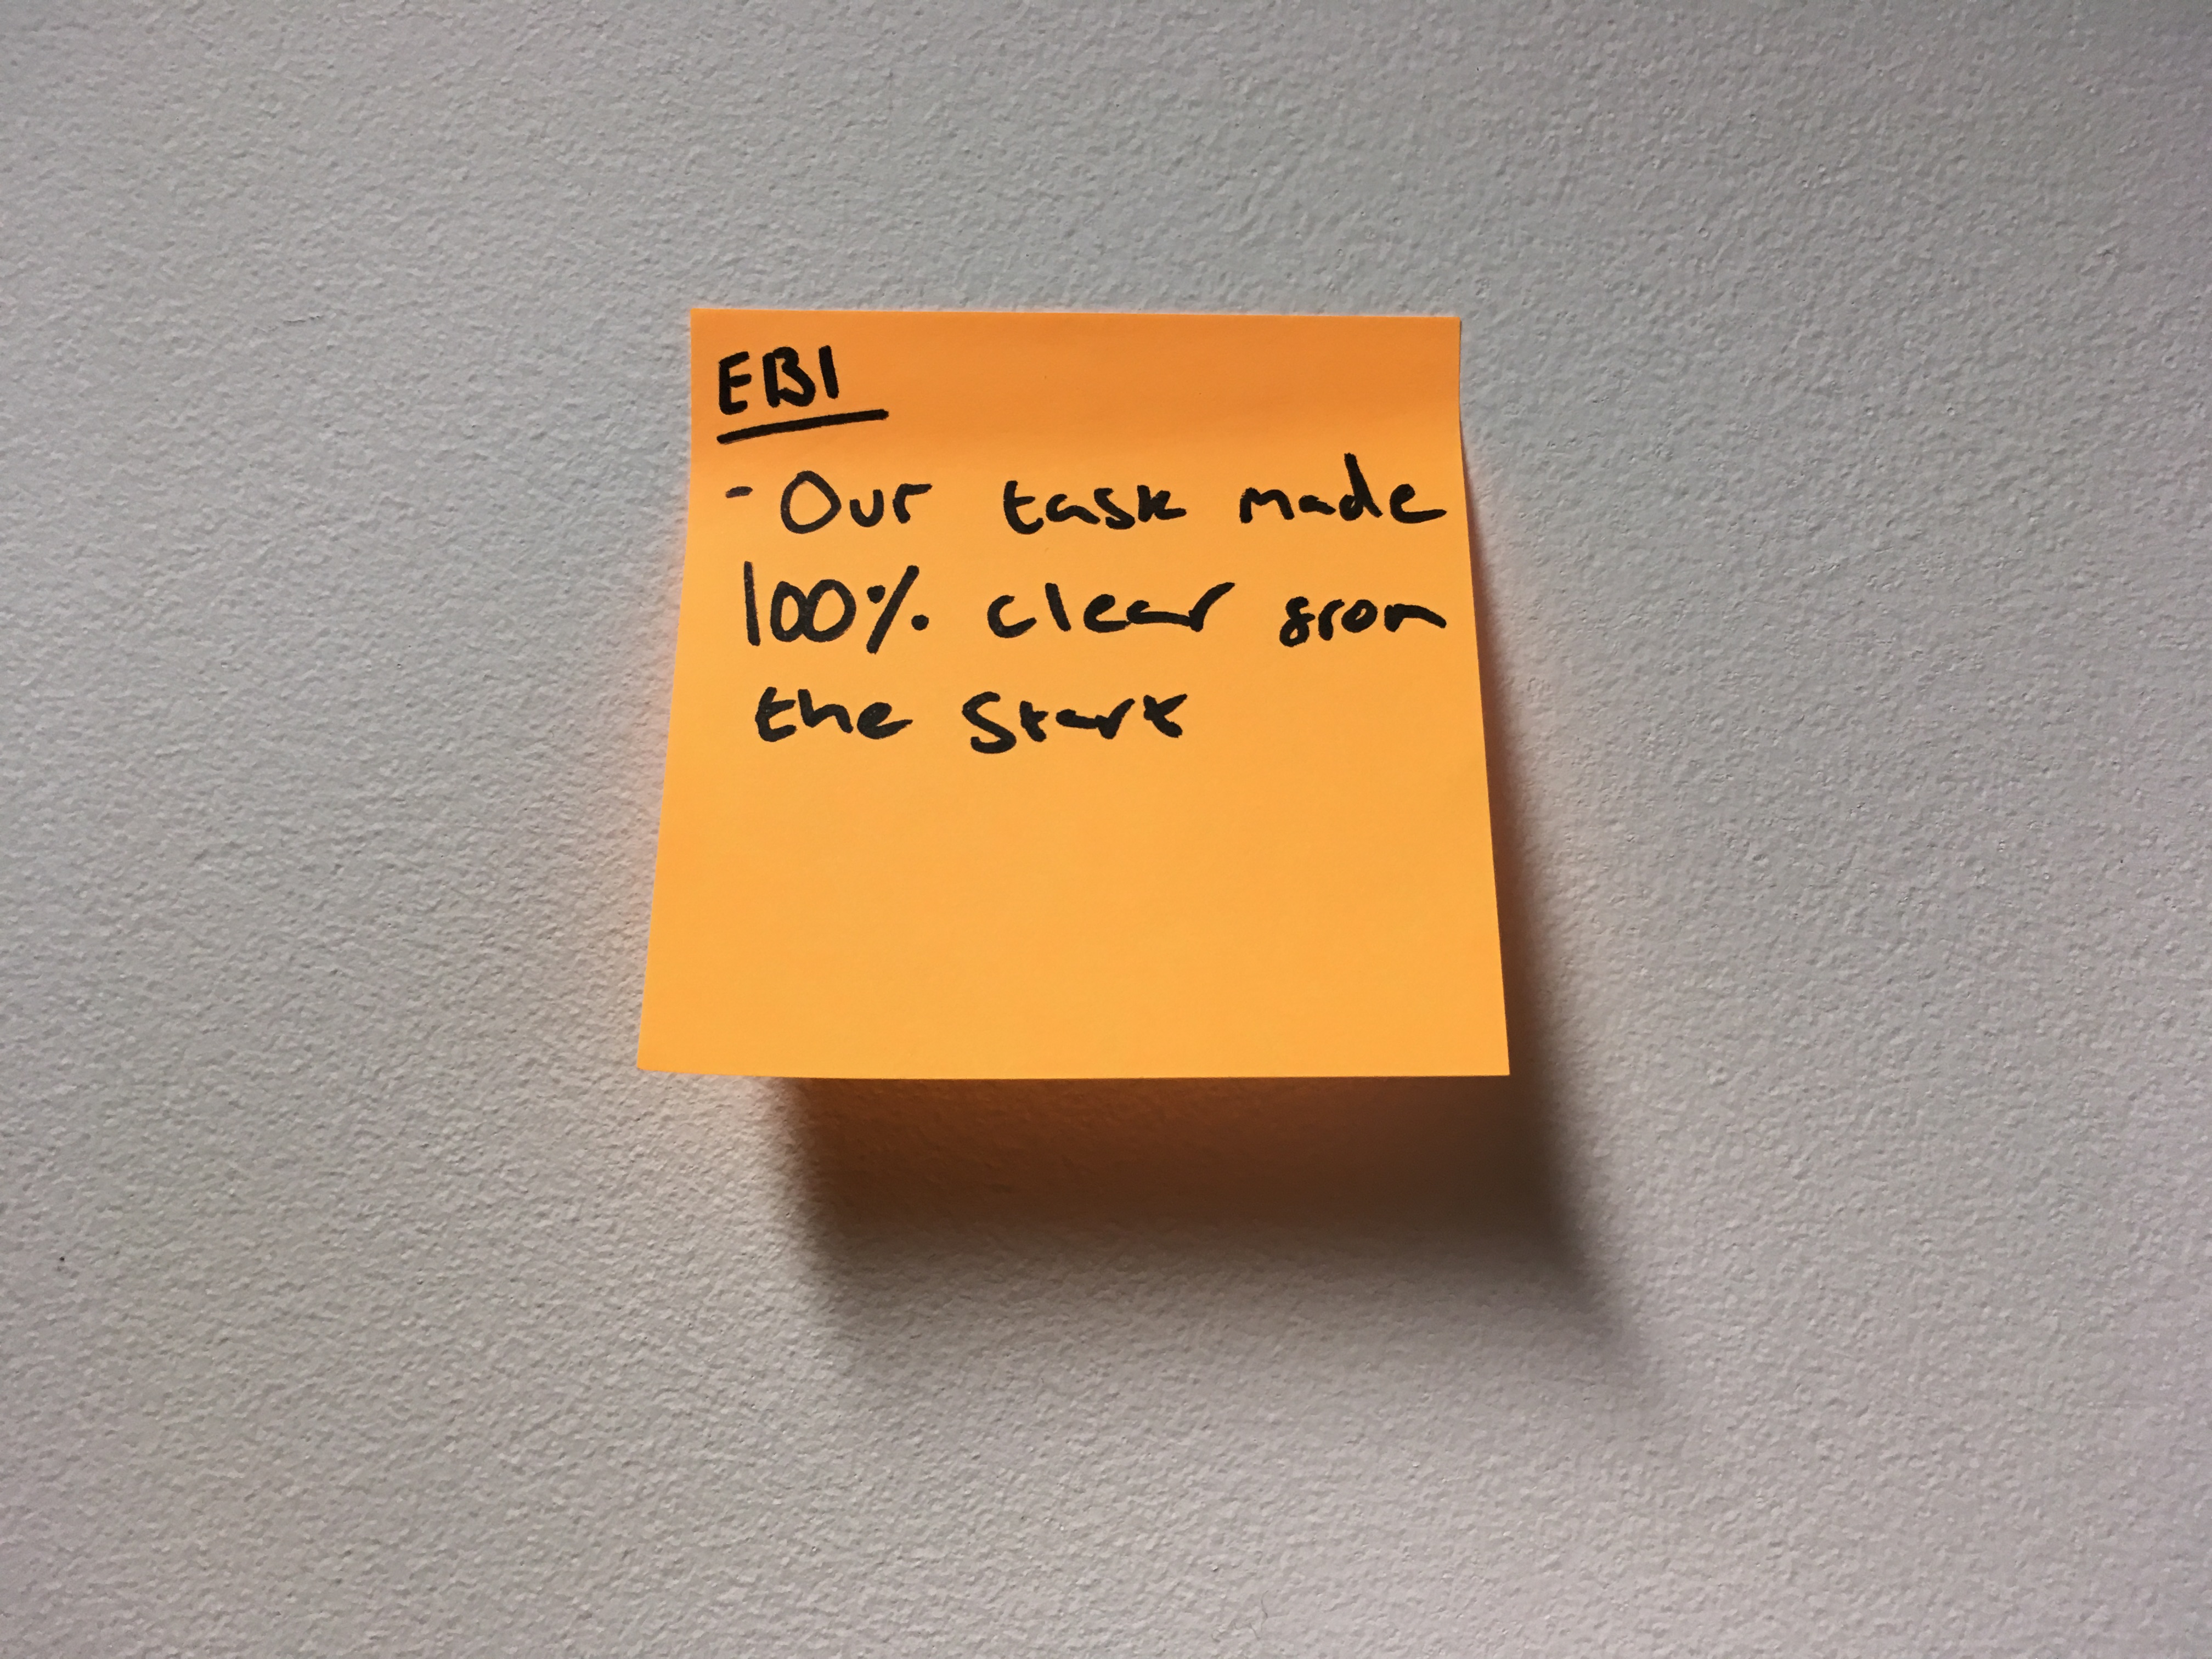 EBI
- Our task made
100% clear from
the Start